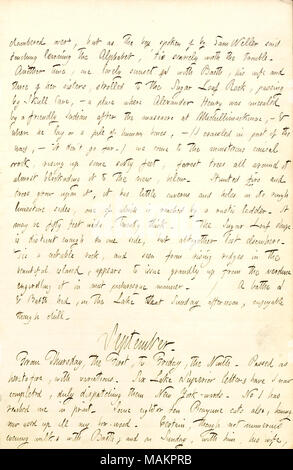 clambered over, but as the boy spoken of by Sam Weller said
touching learning the Alphabet, 'tis scarcely worth the trouble.
Another time, one lovely sunset with Batts, his wife and
three of her sisters, strolled to the Sugar Loaf Rock, passing
by Skull Cave, — a place where Alexander Henry was secreted
by a friendly Indian after the massacre at Michillimackinac, &
where he lay on a pile of human bones, — (I crawled in part of the
way, — 'to don't go far —) we come to the monstrous conical
rock, rising up some sixty feet, forest trees all around it
almost blockading it to the near view. Stunted firs and
trees grow upon it, it has little caverns and holes in its rough
limestone sides, one of which is reached by a rustic ladder. It
may be fifty feet wide, twenty thick. The Sugar Loaf shape
is distinct enough on one side, but altogether lost elsewhere.
'Tis a notable rock, and seen from rising ridges in the
beautiful island, appears to issue grandly up from the verdure
engarding it in most picturesque manner. A bathe
Batts had, in the Lake that Sunday afternoon, enjoyable
though chill.
September.
From Thursday, the First, to Friday, the Ninth. Passed as
heretofore, with variations. Six Lake Superior letters have I now
completed, duly dispatching them New York-wards. No 1 has
reached me in print. Some eight or ten Picayune cuts also, having
now used up all my box-wood. Certain, though not numerous
evening walks with Batts, and on Sunday, with him, his wife,
alamy
Image ID: MAKPRB
www.alamy.com